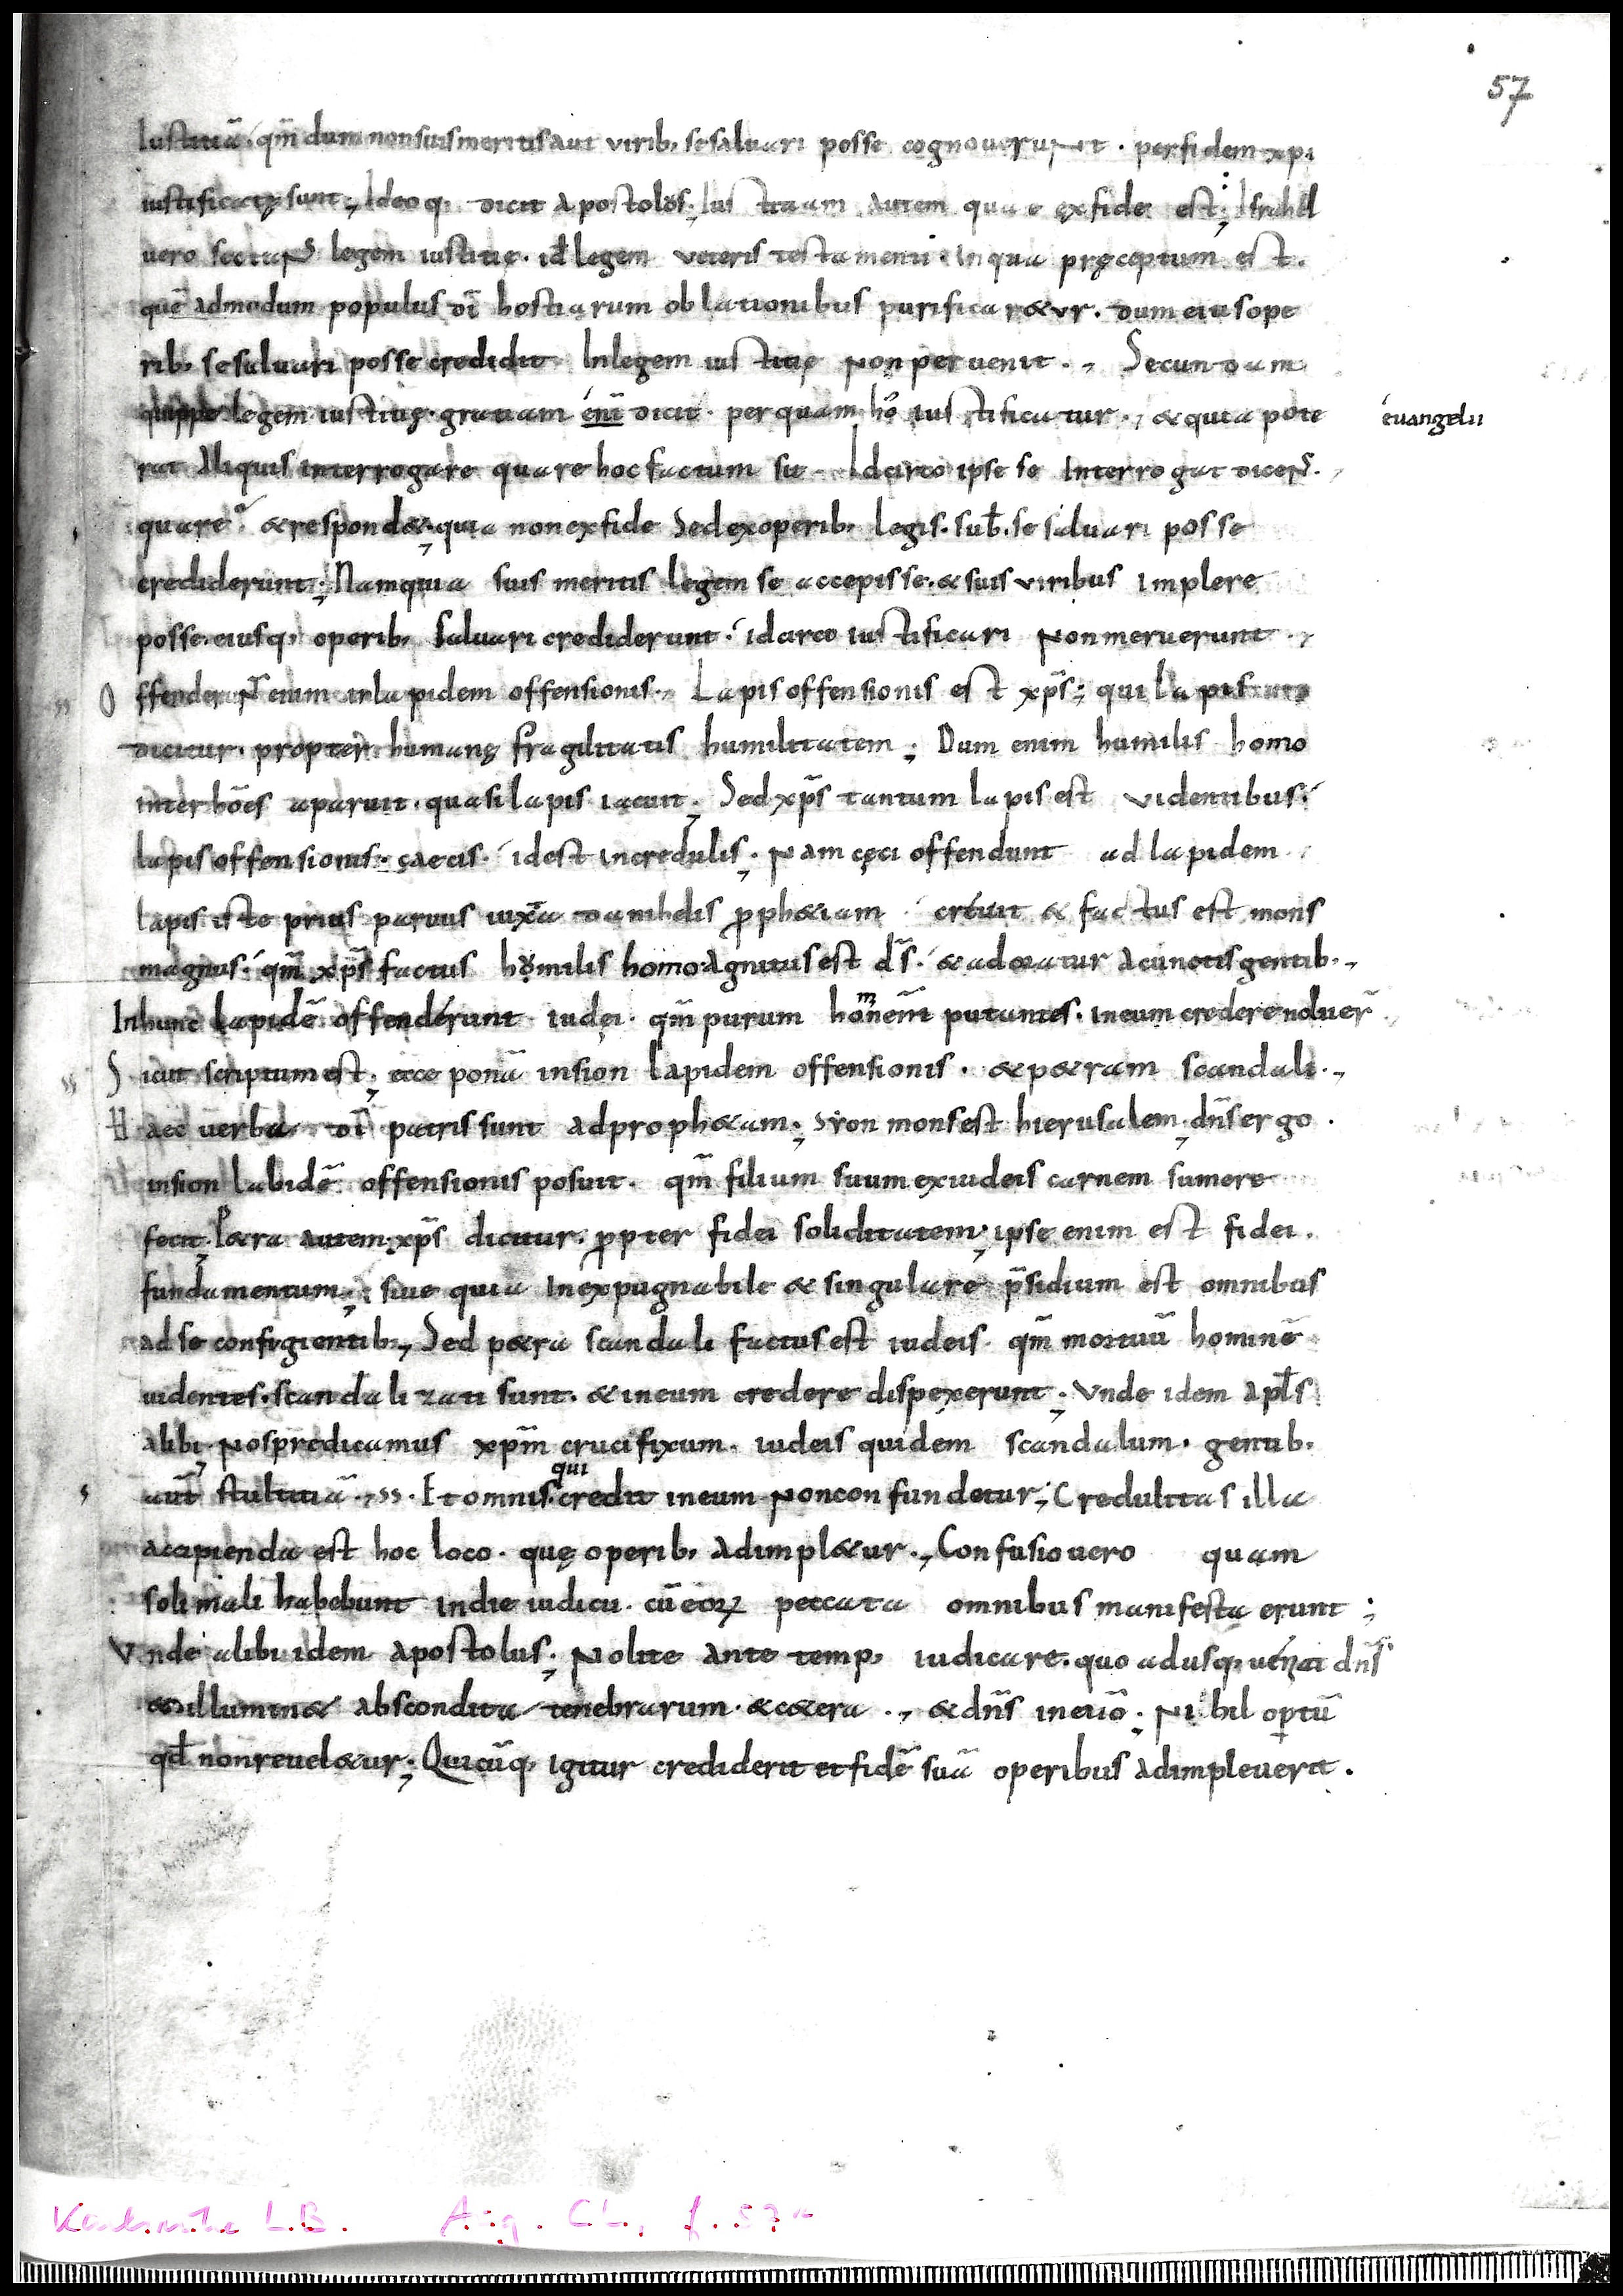 57
Iustitiā. qm̄ dum non suis meritis aut virib, se saluari posse cognouerunt. per fidem xp̄i
iustificatę sunt; Ideoq, dicit apostolos; Iustitiam autem quae ex fide est; Israhel
uero sectaNs legem iustitię. id legem veteris testamenti. In qua pręceptum est.
quē admodum populus dī hostiarum oblationibus purificar&ur. dum eius ope
rib, se saluari posse credidit. In legem iustitię Non peruenit., Secundam
quippe legem iustitię. gratiam enī dicit. per quam hō iustificatur., & quia pote
évangelii
rat aliquis interrogare quare hoc factum sit. Idcirco ipse se Interrogat dicens.,
quare? & respond&; quia non ex fide Sed ex operib, legis. sub. se saluari posse
crediderunt; Nam quia suis meritis legem se accepisse. & suis viribus implere
posse. eiusq, operib, saluari crediderunt. idcirco iustificari Non meruerunt.,
Offender̄N enim in lapidem offensionis., Lapis offensionis est xp̄s; qui lapis
dicitur. propter humanę fragilitatis humilitatem; Dum enim humilis homo
inter hōes aparuit. quasi lapis iacuit; Sed xp̄s tantum lapis est videntibus.
lapis offensionis. çaecis. id est incredulis; Nam cęci offendunt ad lapidem.
lapis iste prius paruus iuxta danihelis pph&iam. creuit & factus est mons
magnus. qm̄ xp̄s factus homilis homo Agnitus est d̄s. & adoratur a cunctis gentib.,
In hunc Lapidē offendérunt iudęi. qm̄ purum homēnēm putantes. in eum credere noluer̄.
Sicut scriptum est; ecce ponā in sion lapidem offensionis. & p&ram scandali.,
Haec uerba dī patris sunt ad proph&am; syon mons est hierusalem; dn̄s ergo.
in sion labidē offensionis posuit. qm̄ filium suum ex iudeis carnem sumere
fecit; P&ra autem xp̄s dicitur. ppter fidei soliditatem; ipse enim est fidei.
fundamentum; siue quia Inexpugnabile & singulare p̄sidium est omnibus
ad se confugientib; Sed p&ra scandali factus est iudeis. qm̄ mortuū hominē
uidentes. scandalizati sunt. & in eum credere dispexerunt; Vnde idem apl̄s
alibi; Nos predicamus xpm̄ crucifixum. iudeis quidem scandalum. gentib.
aut̄ stultitiā., ss. Et omnis. qui credit in eum Non confundetur; Credulitas illa
accipienda est hoc loco. quę operib, adimpl&ur., Confusio uero quam
soli mali habebunt in die iudicii. cū eoꝝ peccata omnibus manifesta erunt;
Vnde alibi idem apostolus; Nolite ante temp, iudicare. quo adusq, uéniat dn̄s
& illumin& abscondita tenebrarum. & c&era., & dn̄s in euḡ; Nihil op̱tū
qd̄ non reuel&ur; Quicūq, igitur crediderit et fidē suā operibus adimpleuerit.